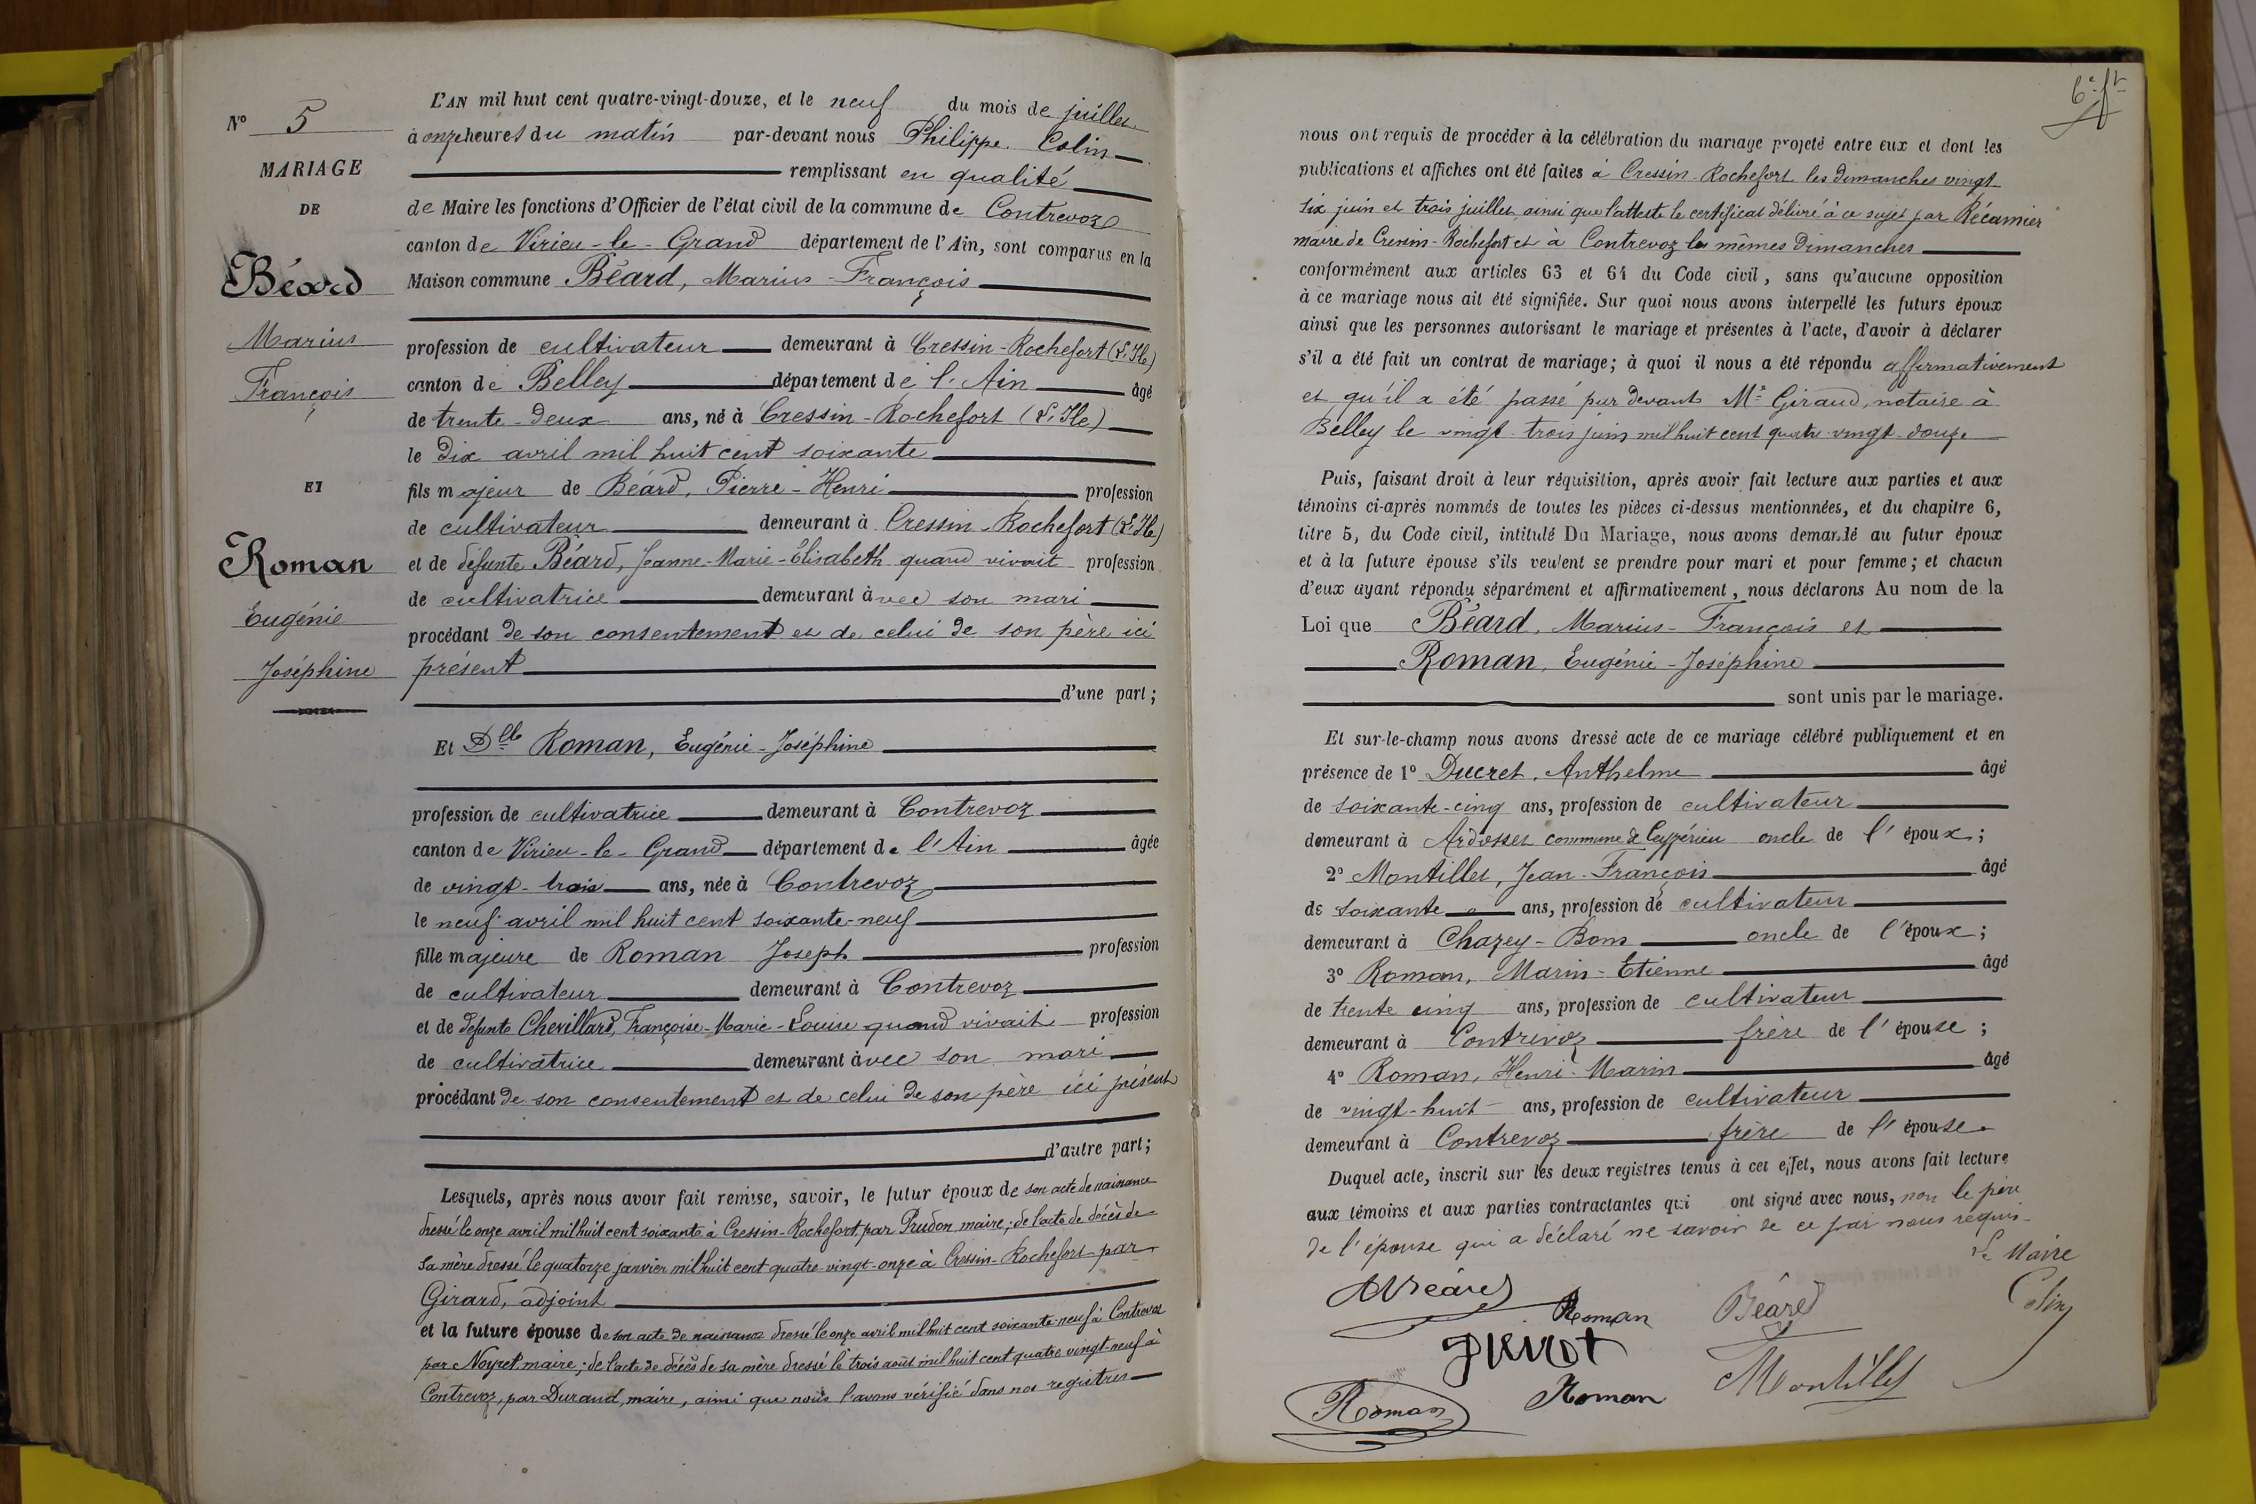 N° 5
MARIAGE
DE
Béard
Marius
François
ET
Roman
Eugénie
Joséphine
L'AN mil huit cent quatre-vingt-douze, et le neuf du mois de juillet
à onze heures du matin par-devant nous Philippe Colin
remplissant en qualité
de Maire les fonctions d'Officier de l'état civil de la commune de Contrevoz
canton de Virieu-le-Grand département de l'Ain, sont comparus en la
Maison commune Béard, Marius-François
profession de cultivateur demeurant à Cressin-Rochefort (L'Ile)
canton de Belley département de l'Ain âgé
de trente-deux ans, né à Cressin-Rochefort (L'Ile)
le dix avril mil huit cent soixante
fils majeur de Béard, Pierre-Henri profession
de cultivateur demeurant à Cressin-Rochefort (L'Ile)
et de défunte Béard, Jeanne-Marie-Élisabeth quand vivait profession
de cultivatrice demeurant avec son mari
procédant de son consentement et de celui de son père ici
présent
d'une part ;
Et Dlle Roman, Eugénie-Joséphine
profession de cultivatrice demeurant à Contrevoz
canton de Virieu-le-Grand département de l'Ain âgée
de vingt-trois ans, née à Contrevoz
le neuf avril mil huit cent soixante-neuf
fille majeure de Roman Joseph profession
de cultivateur demeurant à Contrevoz
et de défunte Chevillard, Françoise-Marie-Louise quand vivait profession
de cultivatrice demeurant avec son mari
procédant de son consentement et de celui de son père ici présent
d'autre part ;
Lesquels, après nous avoir fait remise, savoir, le futur époux de son acte de naissance
dressé le onze avril mil huit cent soixante à Cressin-Rochefort par Prudon maire ; de l'acte de décès de
sa mère dressé le quatorze janvier mil huit cent quatre-vingt-onze à Cressin-Rochefort par
Girard, adjoint
et la future épouse de son acte de naissance dressé le onze avril mil huit cent soixante-neuf à Contrevoz
par Noyret, maire ; de l'acte de décès de sa mère dressé le trois août mil huit cent quatre-vingt-neuf à
Contrevoz, par Durand, maire, ainsi que nous l'avons vérifié dans nos registres
6e ft
nous ont requis de procéder à la célébration du mariage projeté entre eux et dont les
publications et affiches ont été faites à Cressin-Rochefort les dimanches vingt-
six juin et trois juillet, ainsi que l'atteste le certificat délivré à ce sujet par Récamier
maire de Cressin-Rochefort et à Contrevoz les mêmes dimanches
conformément aux articles 63 et 64 du Code civil, sans qu'aucune opposition
à ce mariage nous ait été signifiée. Sur quoi nous avons interpellé les futurs époux
ainsi que les personnes autorisant le mariage et présentes à l'acte, d'avoir à déclarer
s'il a été fait un contrat de mariage ; à quoi il nous a été répondu affirmativement
et qu'il a été passé par devant Me Giraud, notaire à
Belley le vingt-trois juin mil huit cent quatre-vingt-douze
Puis, faisant droit à leur réquisition, après avoir fait lecture aux parties et aux
témoins ci-après nommés de toutes les pièces ci-dessus mentionnées, et du chapitre 6,
titre 5, du Code civil, intitulé Du Mariage, nous avons demandé au futur époux
et à la future épouse s'ils veulent se prendre pour mari et pour femme ; et chacun
d'eux ayant répondu séparément et affirmativement, nous déclarons Au nom de la
Loi que Béard, Marius-François et
Roman, Eugénie-Joséphine
sont unis par le mariage.
Et sur-le-champ nous avons dressé acte de ce mariage célébré publiquement et en
présence de 1° Ducret, Anthelme âgé
de soixante-cinq ans, profession de cultivateur
demeurant à Ardosset commune de Ceyzérieu oncle de l'époux ;
2° Montillet, Jean-François âgé
de soixante ans, profession de cultivateur
demeurant à Chazey-Bons oncle de l'époux ;
3° Roman, Marin-Etienne âgé
de trente cinq ans, profession de cultivateur
demeurant à Contrevoz frère de l'épouse ;
4° Roman, Henri-Marin âgé
de vingt-huit ans, profession de cultivateur
demeurant à Contrevoz frère de l'épouse
Duquel acte, inscrit sur les deux registres tenus à cet effet, nous avons fait lecture
aux témoins et aux parties contractantes qui ont signé avec nous, non le père
de l'épouse qui a déclaré ne savoir de ce par nous requis
Le Maire
Béard
Roman
Béard
Colin
Montillet
Roman
Roman